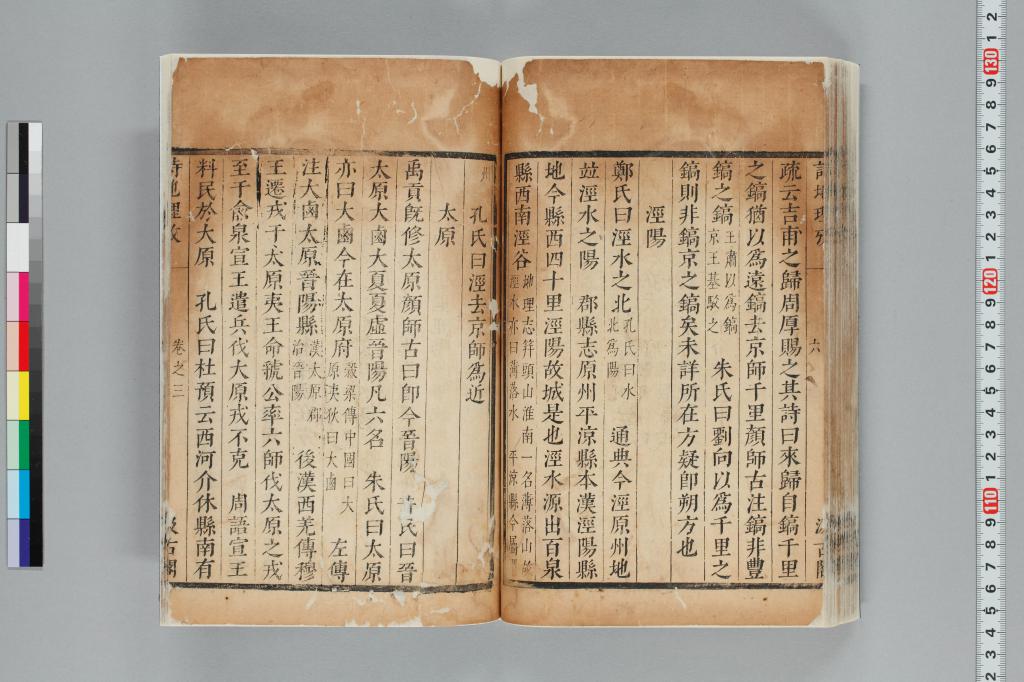 疏云吉甫之歸周厚賜之其詩曰來歸自鎬千里
之鎬猶以爲遠鎬去京師千里顏師古注鎬非豐
鎬之鎬王肅以爲鎬京王基駁之　朱氏曰劉向以爲千里之
鎬則非鎬京之鎬矣未詳所在方疑卽朔方也
涇陽
鄭氏曰涇水之北孔氏曰水北爲陽　通典今涇原州地
竝涇水之陽　郡縣志原州平涼縣本漢涇陽縣
地今縣西四十里涇陽故城是也涇水源出百泉
縣西南涇谷地理志筓頭山淮南一名薄落山故涇水亦曰薄落水　平涼縣今屬
州
孔氏曰涇去京師爲近
太原
禹貢旣修太原顏師古曰卽今晉陽　氏曰晉
太原大鹵大夏夏虛晉陽凡六名　朱氏曰太原
亦曰大鹵今在太原府穀梁傳中國曰大原夷狄曰大鹵　左傳
注大鹵太原晉陽縣漢太原郡治晉陽　後漢西羌傳穆
王遷戎于太原夷王命虢公率六師伐太原之戎
至于兪泉宣王遣兵伐大原戎不克　周語宣王
料民於大原　孔氏曰杜預云西河介休縣南有
詩地理攷
卷之三
汲古閣
六